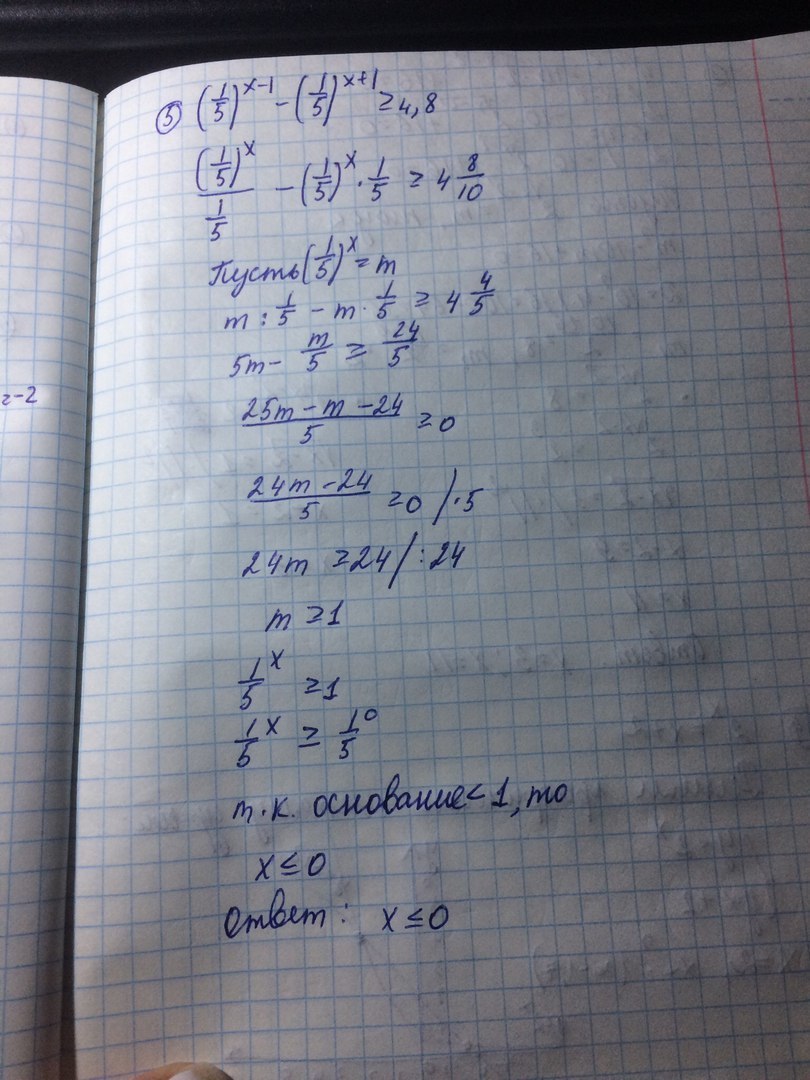 ⑤ (1/5)^(x-1) - (1/5)^(x+1) ≥ 4,8
(1/5)^x / (1/5) - (1/5)^x · 1/5 ≥ 4 8/10
Пусть (1/5)^x = m
m : 1/5 - m · 1/5 ≥ 4 4/5
5m - m/5 ≥ 24/5
(25m - m - 24)/5 ≥ 0
(24m - 24)/5 ≥ 0 / · 5
24m ≥ 24 / : 24
m ≥ 1
1/5^x ≥ 1
1/5^x ≥ 1/5^0
т.к. основание < 1, то
x ≤ 0
Ответ: x ≤ 0
=-2